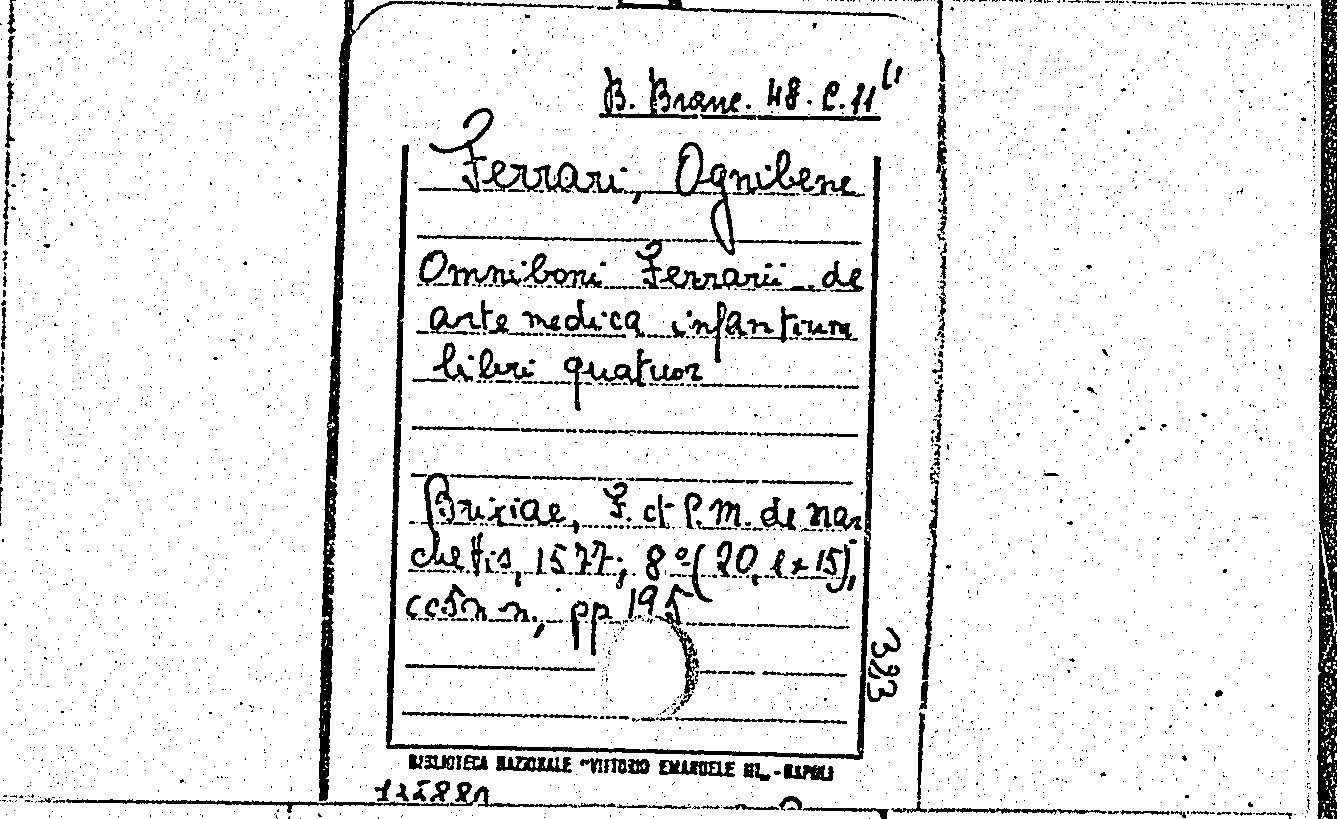 B. Branc. 48. C. 11
Ferrari, Ognibene
Omniboni Ferrarii de
arte medica infantium
libri quatuor
Brixiae, F. et P. M. de Mar
chettis, 1577; 8º (20, 1 x 15),
cc 5 n n., pp 195
383
BIBLIOTECA NAZIONALE "VITTORIO EMANUELE III" - NAPOLI